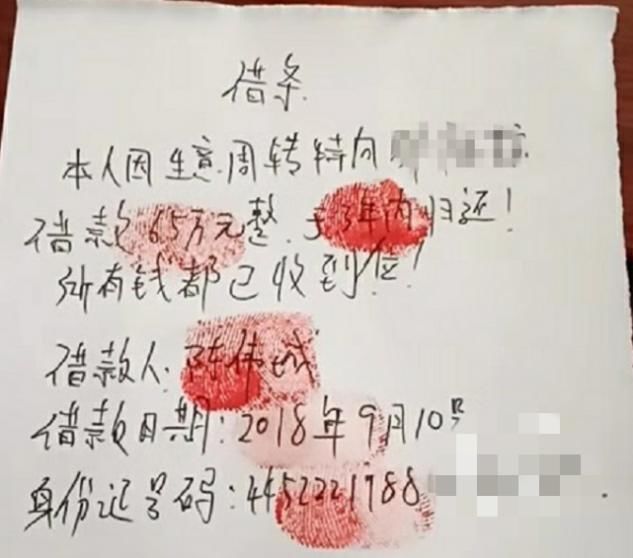 借条
本人因生意周转特向
借款65万元整，于3年内归还！
所有钱都已收到位！
借款人：陈伟城
借款日期：2018年9月10号
身份证号码：4452221988